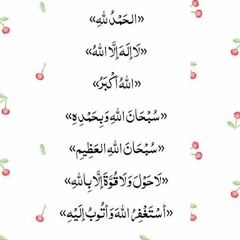 «الحَمْدُ لِلهِ»
«لَا إِلَهَ إِلَّا اللهُ»
«اللهُ أَكْبَرُ»
«سُبْحَانَ اللهِ وَبِحَمْدِهِ»
«سُبْحَانَ اللهِ العَظِيمِ»
«لَا حَوْلَ وَلَا قُوَّةَ إِلَّا بِاللهِ»
«أَسْتَغْفِرُ اللهَ وَأَتُوبُ إِلَيْهِ»